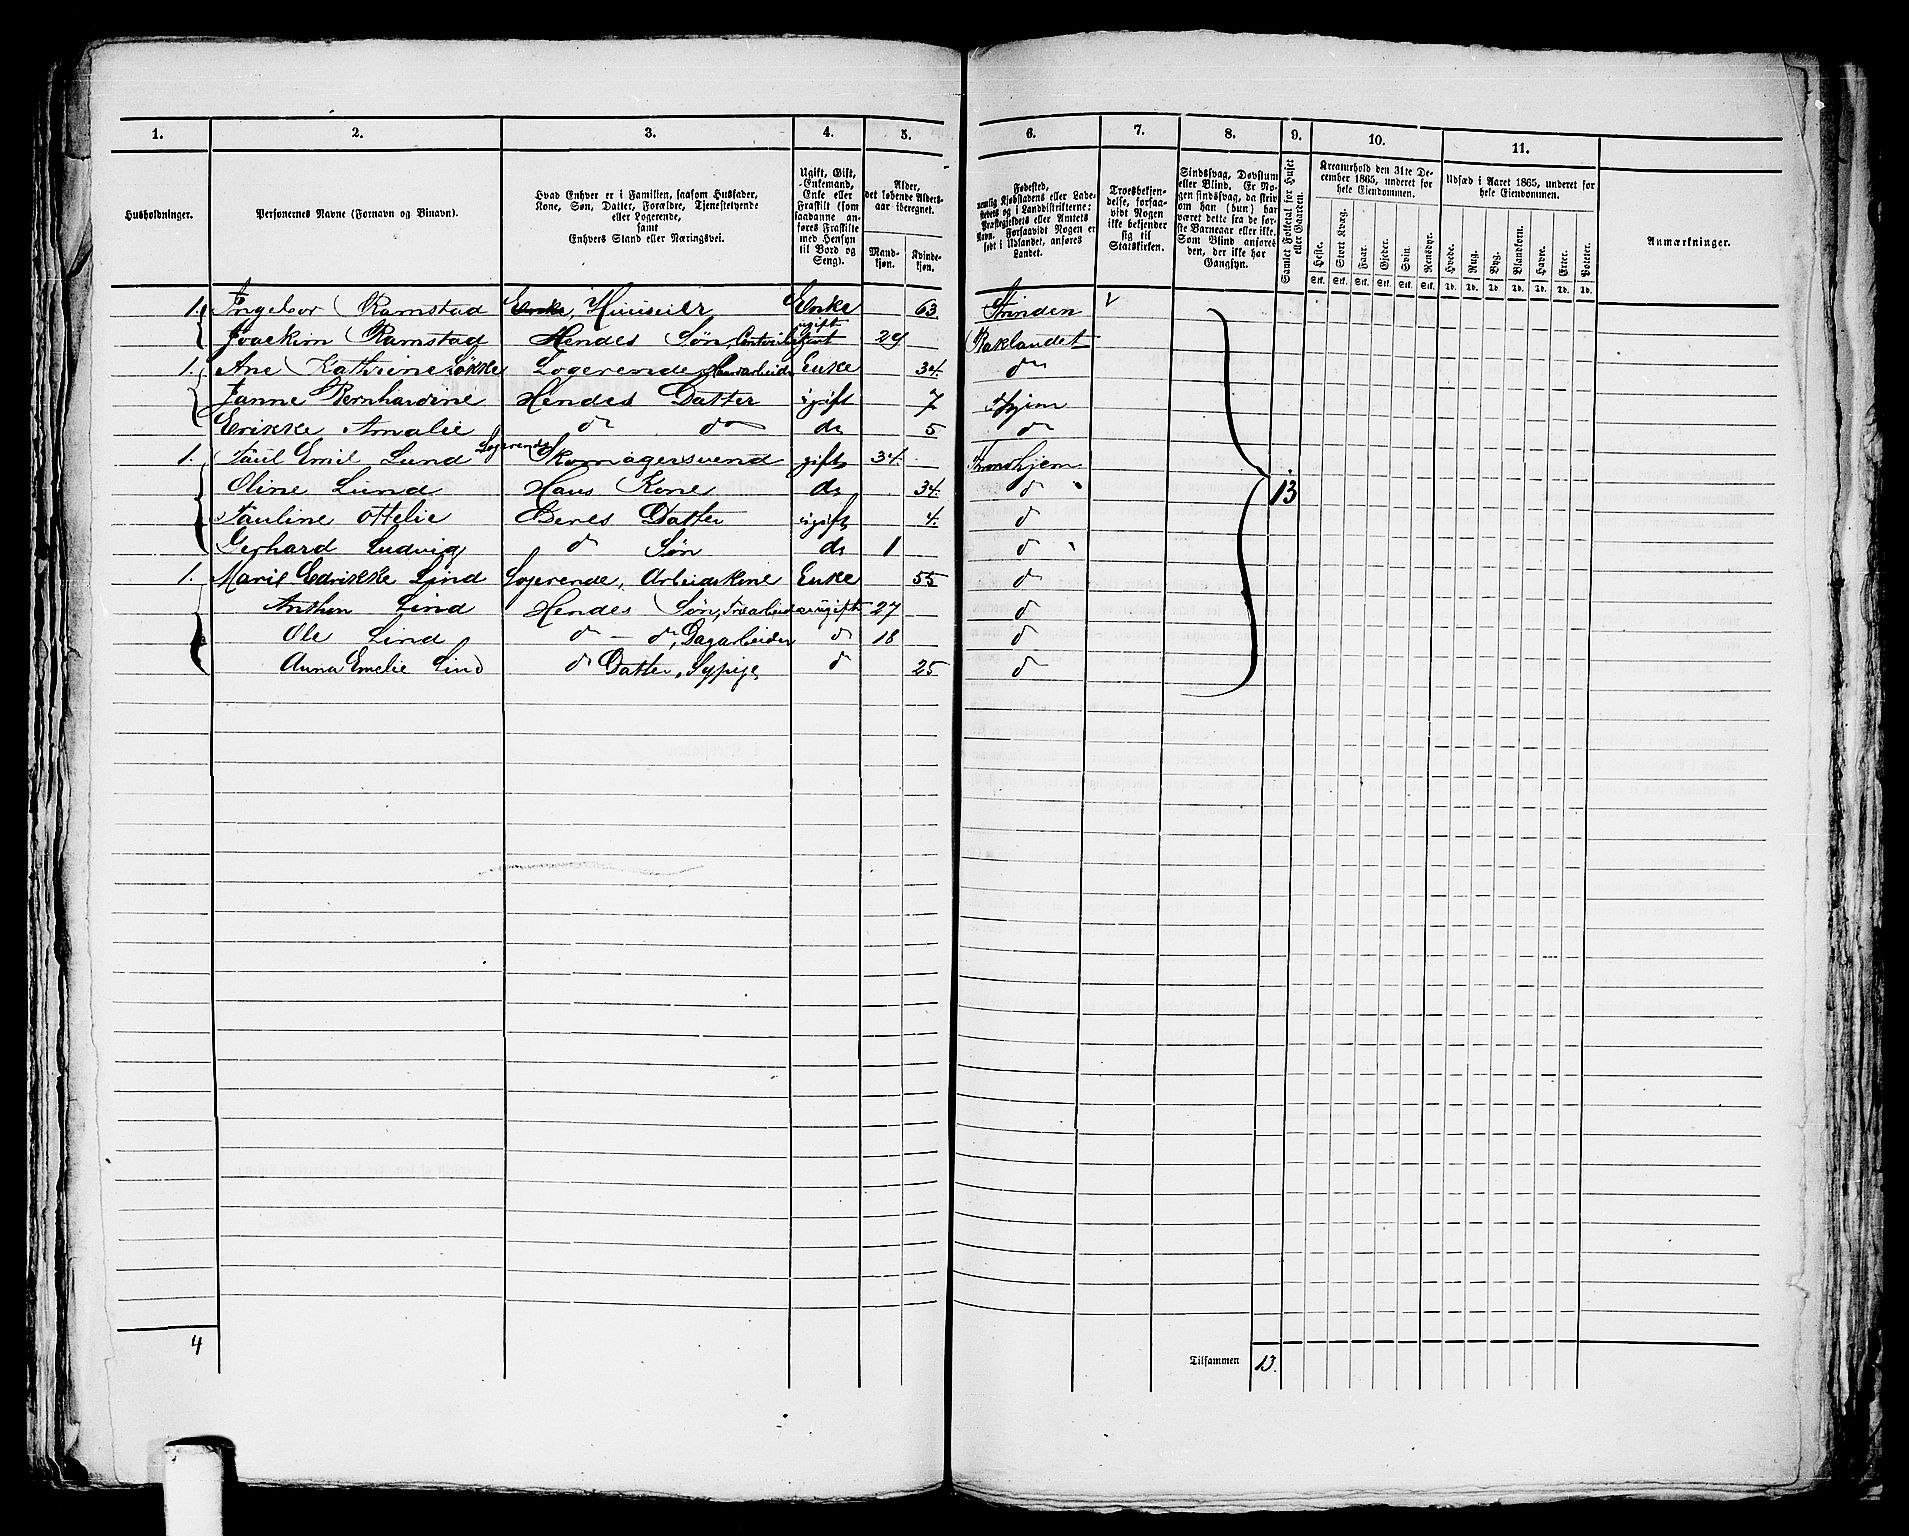 1. 2. 3. 4. 5. 6. 7. 8. 9. 10. 11.
Husholdninger.
Personernes Navne (Fornavn og Binavn).
Hvad Enhver er i Familien, saasom Husfader,
Kone, Søn, Datter, Forældre, Tjenestetyende
eller Logerende,
samt
Enhvers Stand eller Næringsvei.
Ugift, Gift,
Enkemand,
Enke eller
Fraskilt (som
saadanne an-
føres Fraskilte
med Hensyn
til Bord og
Seng).
Alder,
det løbende Alders-
aar iberegnet.
Mand-
kjøn.
Kvinde-
kjøn.
Fødested,
nemlig Kjøbstadens eller Lade-
stedets og i Landdistrikterne:
Præstegjeldets eller Amtets
Navn. Forsaavidt Nogen er
født i Udlandet, anføres
Landet.
Troesbekjen-
delse, forsaa-
vidt Nogen
ikke bekjender
sig til
Statskirken.
Sindssvag, Døvstum
eller Blind. Er No-
gen sindssvag, da skriv
om han (hun) har
været dette fra de før-
ste Barneaar eller ikke.
Som Blind anføres
den, der ikke har
Gangsyn.
Samlet Folketal for Huset
eller Gaarden.
Kreaturhold den 31te De-
cember 1865, underet for
hele Eiendommen.
Heste. Stort Kvæg. Faar. Gjeder. Svin. Rensdyr.
Stk. Stk. Stk. Stk. Stk. Stk.
Udsæd i Aaret 1865, underet for
hele Eiendommen.
Hvede. Rug. Byg. Blandkorn. Havre. Erter. Poteter.
Td. Td. Td. Td. Td. Td. Td.
Anmærkninger.
1. Ingebor Ramstad Enke, Huuseier Enke 63 Strinden
Joackim Ramstad Hendes Søn, ugift 29 Baklandet
1. Ane Kathrine Løkke Logerende, Haandarbeide Enke 34. do
Janne Bernhardine Hendes Datter ugift 7 Thjem
Erikke Amalie do do do 5 do
1. Paul Emil Lund Logerende Skomagersvend gift 34. Trondhjem
Oline Lund Hans Kone do 34. do
Pauline Ottelie Deres Datter ugift 4. do
Gerhard Ludvig do Søn do 1 do
1. Marie Edrikke Lind Logerende, Arbeidskone Enke 55 do
Anthon Lind Hendes Søn, Træarbeider ugift 27 do
Ole Lind do — do, Dagarbeider do 18 do
Anna Emelie Lind do Datter, Sypige do 25 do
13
4
Tilsammen 13.